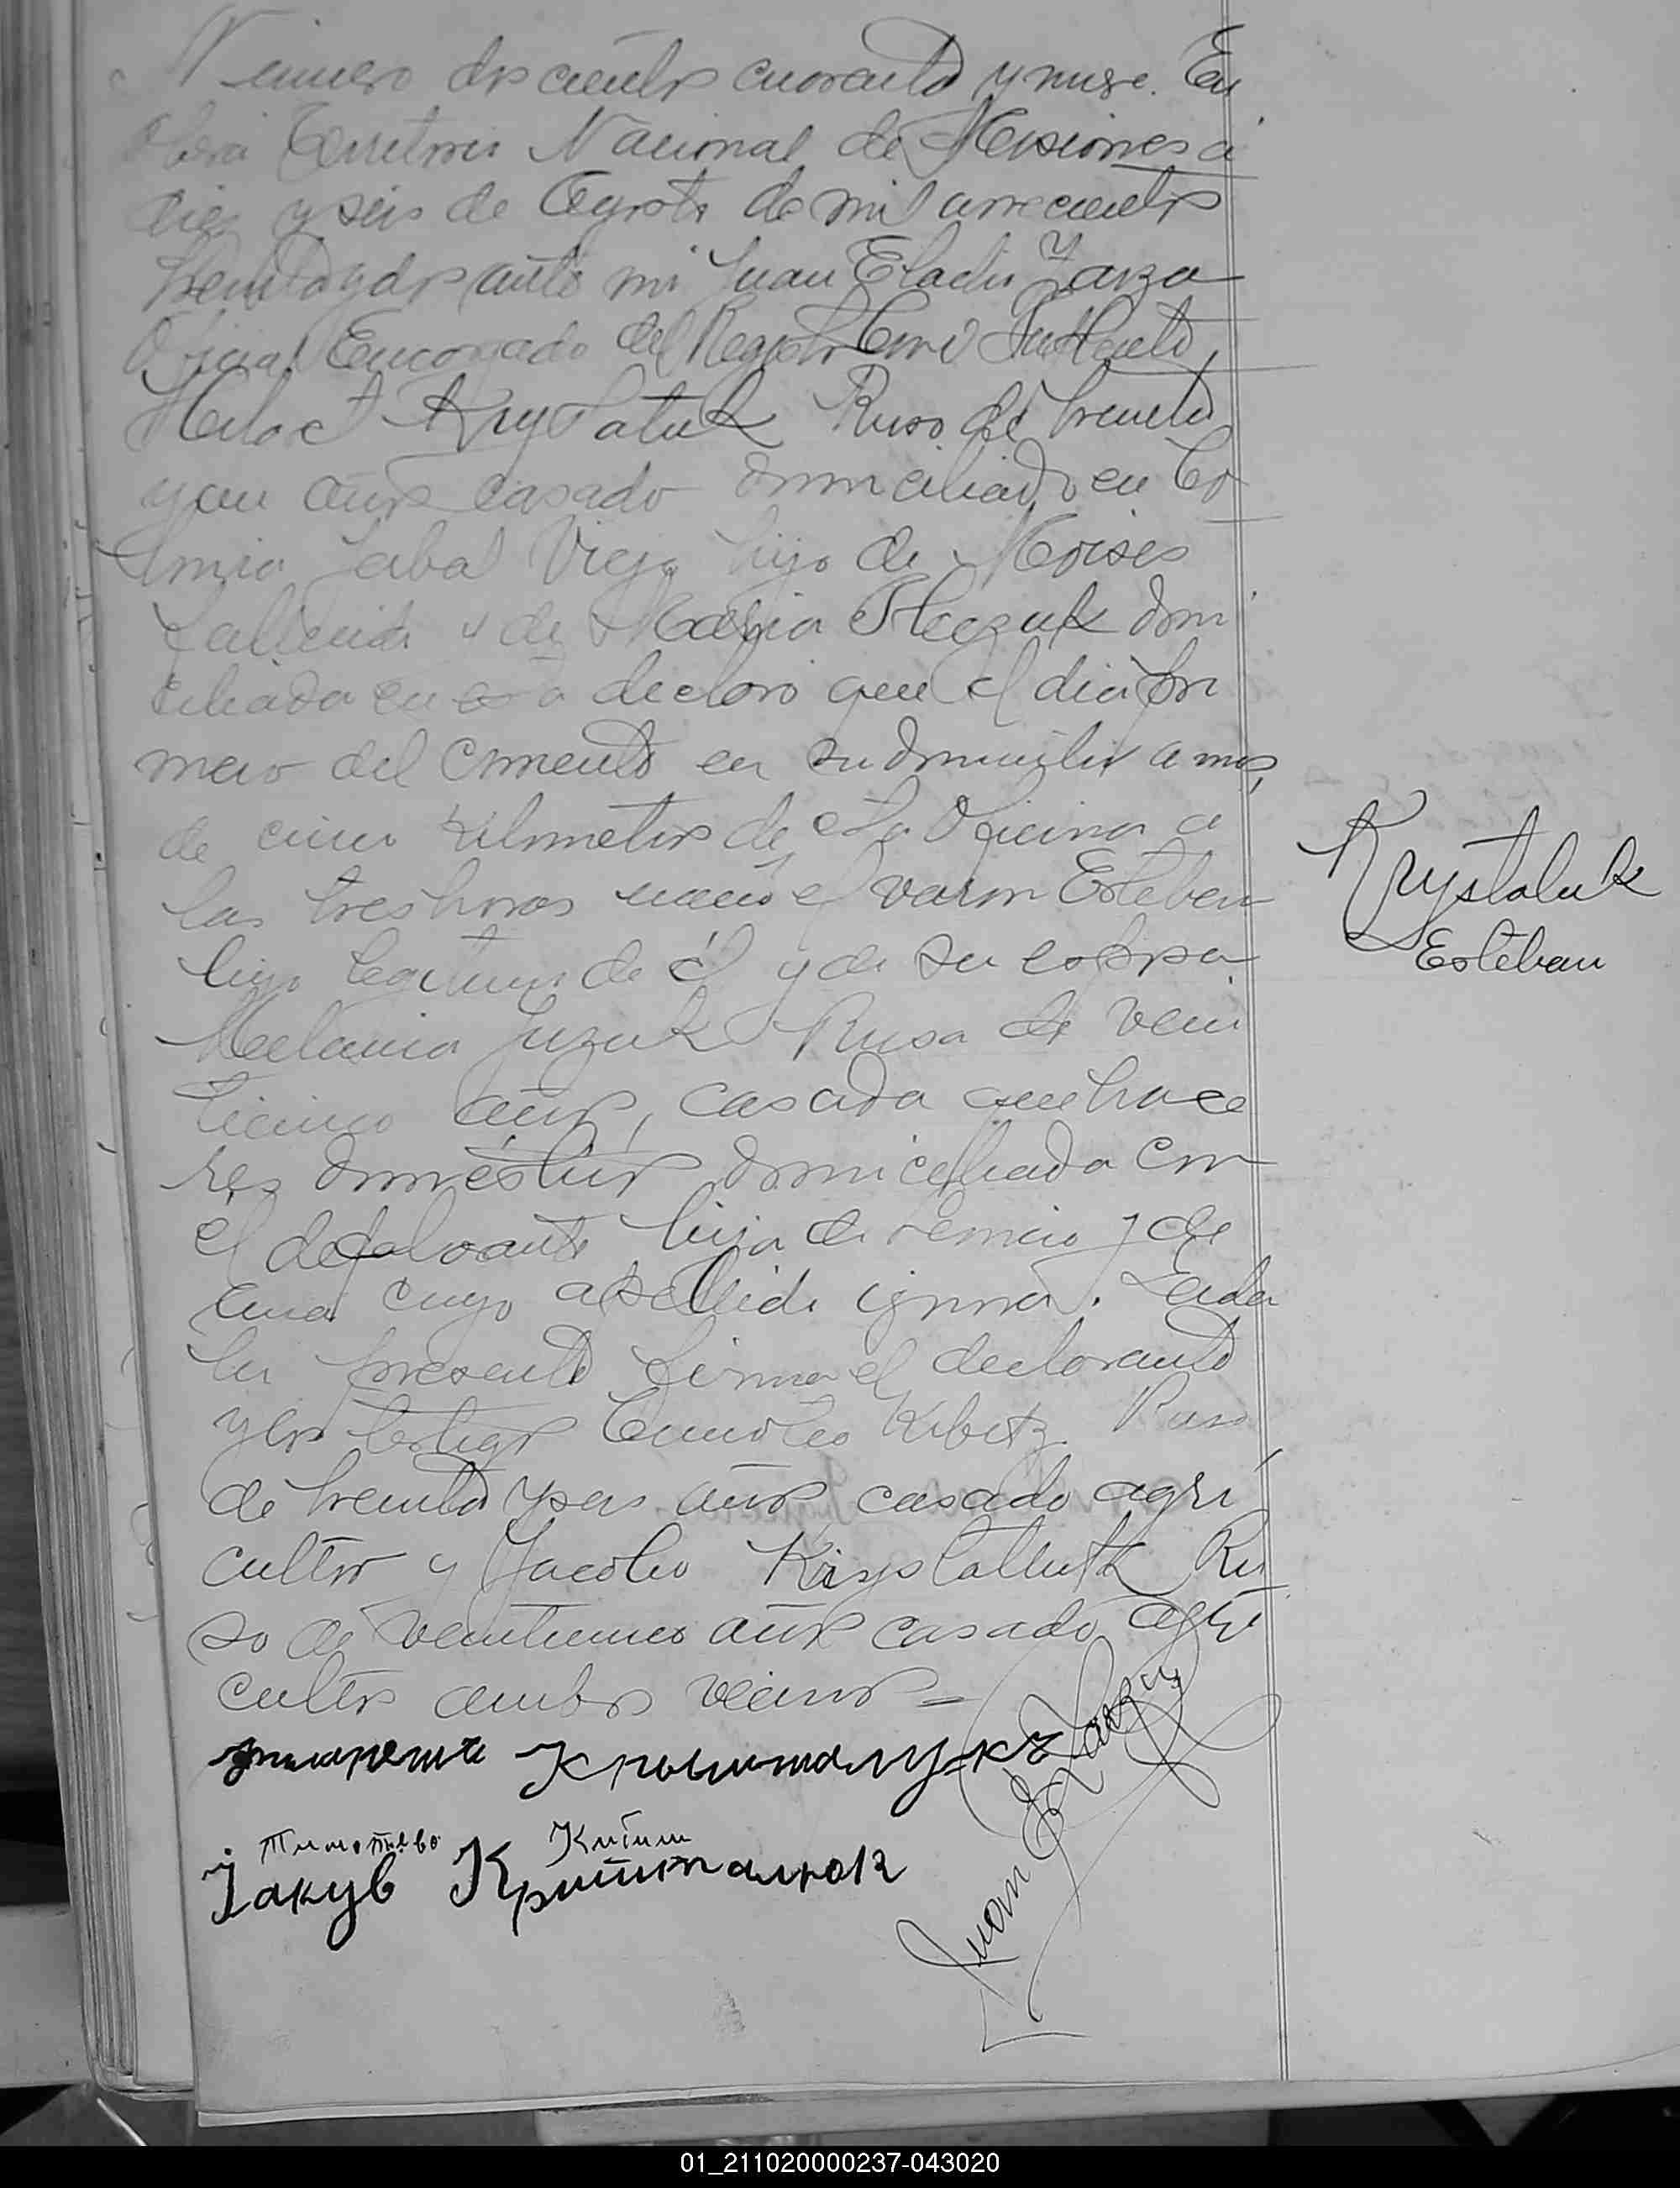 Número doscientos cuarenta y nueve. En
Oberá Territorio Nacional de Misiones a
diez y seis de Agosto de mil novecientos
treinta y dos ante mi Juan Eladio Zarza
Oficial Encargado del Registro Civil
Krystaluk Ruso de treinta
y un años casado domiciliado en Co
lonia Yerbal Viejo hijo de Moises
fallecido y de Maria domi
ciliada en declaró que el dia pri
mero del corriente en su domicilio a mas
de cinco kilometros de esta Oficina a
las tres horas nació el varon Esteban
hijo legitimo de él y de su esposa
Melania Juzuk Rusa de vein
ticinco años, casada quehace
res domésticos domiciliada con
el declarante hija de y de
Ana cuyo apellido ignora. Leida
la presente firma el declarante
y los testigos Timoteo Kibitz Ruso
de treinta y seis años casado agri
cultor y Jacobo Krystalluk Ru
so de veinticinco años casado agri
cultor ambos vecinos =
Krystaluk
Esteban
Кришталукъ
Тимотево Китиш
Якув Кришталюк
Juan E Zarza
01_211020000237-043020